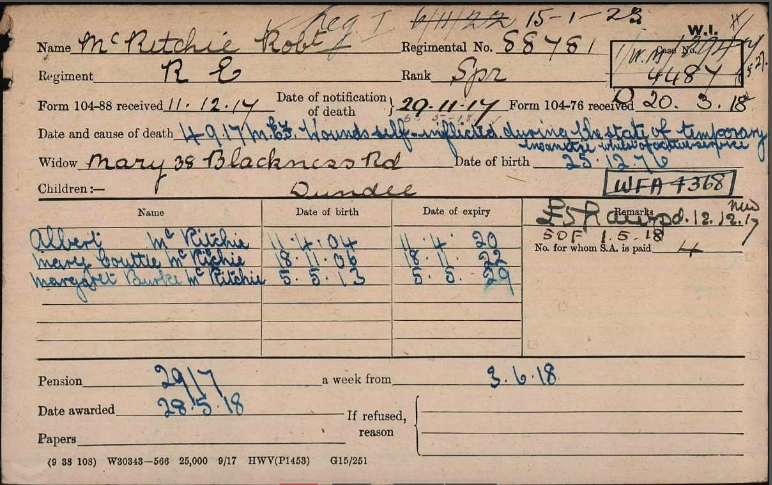 15-1-23
W.I.
Name McRitchie Robt Regimental No. 88781 Case No.
4487
Regiment R E Rank Spr
Form 104-88 received 11.12.17 Date of notification of death } 29.11.17 Form 104-76 received 20.3.18
Date and cause of death 4 9 17 Wounds self-inflicted during the state of temporary
insanity whilst on active service
Widow Mary 38 Blackness Rd Date of birth 25.12.76
Children:— Dundee WFA 4368
Name Date of birth Date of expiry Remarks
12.12.17
SOF 1.5.18
Albert McRitchie 11.4.04 11.4.20 No. for whom S.A. is paid 4
Mary Couttie McRitchie 18.11.06 18.11.22
Margaret Burke McRitchie 5.5.13 5.5.29
Pension 29/7 a week from 3.6.18
Date awarded 28.5.18 If refused, reason
Papers
(9 38 108) W30343—566 25,000 9/17 HWV(P1453) G15/251